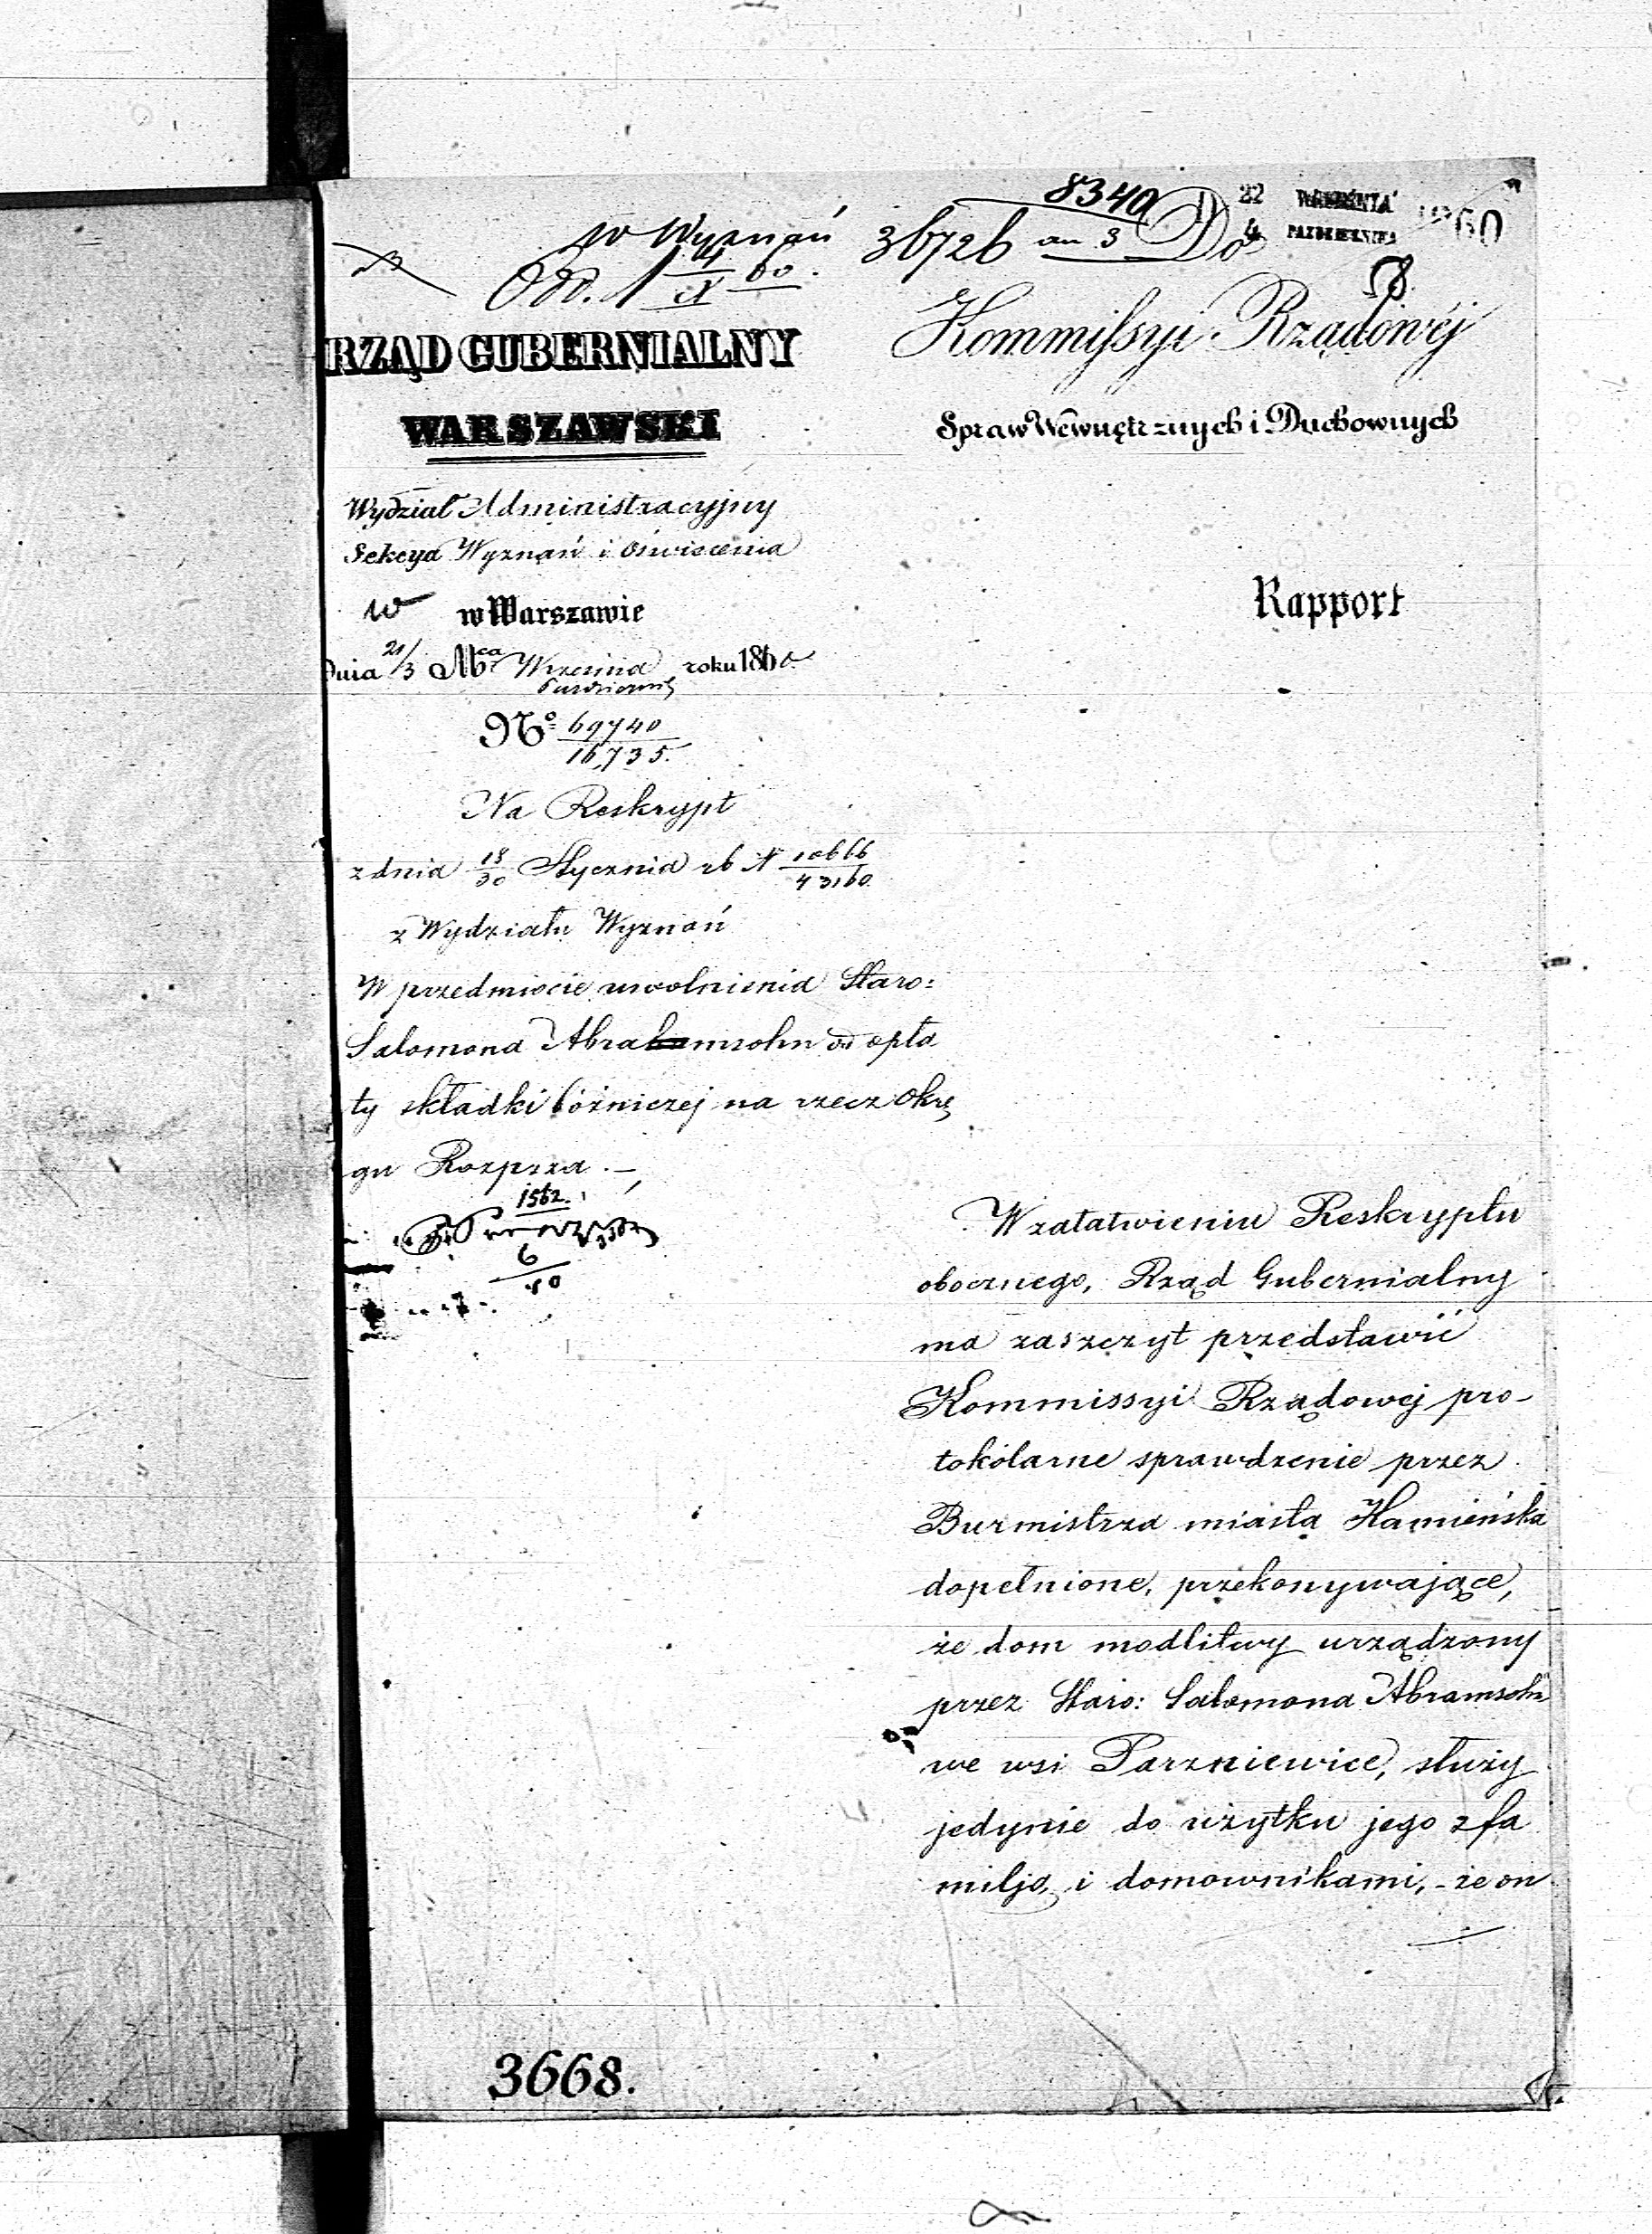 8340
W Wyznań 36726 an 3 Do
22 WRZEŚNIA
4 PAZDZIERNIKA
60
Odd. 1 4/X 60.
58.
RZĄD GUBERNIALNY
WARSZAWSKI
Wydział Administracyjny
Sekcya Wyznań i Oświecenia
w Warszawie
Dnia 21/3 Mca Września roku 1860
Październik
No 69740
16,735.
Na Reskrypt
z dnia 18/30 Stycznia rb N 10666/43160
z Wydziału Wyznań
W przedmiocie uwolnienia Staro:
Salomona Abrahamsohn od opła
ty składki bóżniczej na rzecz Okrę
gu Rozprza. —
1562.
6
10
Kommissyi Rządowéj
Spraw Wewnętrznych i Duchownych
Rapport
W załatwieniu Reskryptu
obocznego, Rząd Gubernialny
ma zaszczyt przedstawić
Kommissyi Rządowej pro-
tokólarne sprawdzenie przez
Burmistrza miasta Kamieńska
dopełnione, przekonywające,
że dom modlitwy urządzony
przez Staro: Salomona Abramsohn
we wsi Parzniewice, służy
jedynie do użytku jego z fa
milją, i domownikami, - że on
3668.